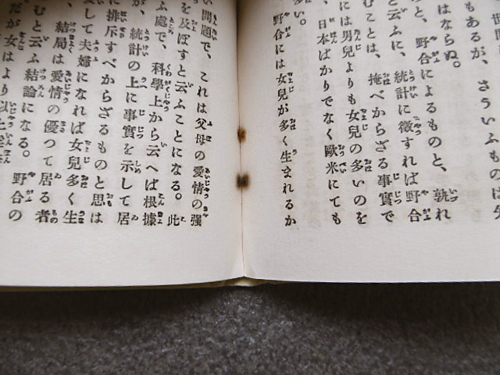 もあるが、さういふものは
はならぬ。
と、野合によるものと、孰れ
云ふに、統計に徴すれば野合
むことは、掩べからざる事實で
には男兒よりも女兒の多いのを
、日本ばかりでなく歐米にても
野合には女兒が多く生まれるか
問題で、これは父母の愛情の强
を及ぼすと云ふことになる。此
處で、科學上から云へば根據
が、統計の上に事實を示して居
に排斥すべからざるものと思は
して夫婦になれば女兒多く生
、結局は愛情の優つて居る者
むと云ふ結論になる。野合の
が女はより以